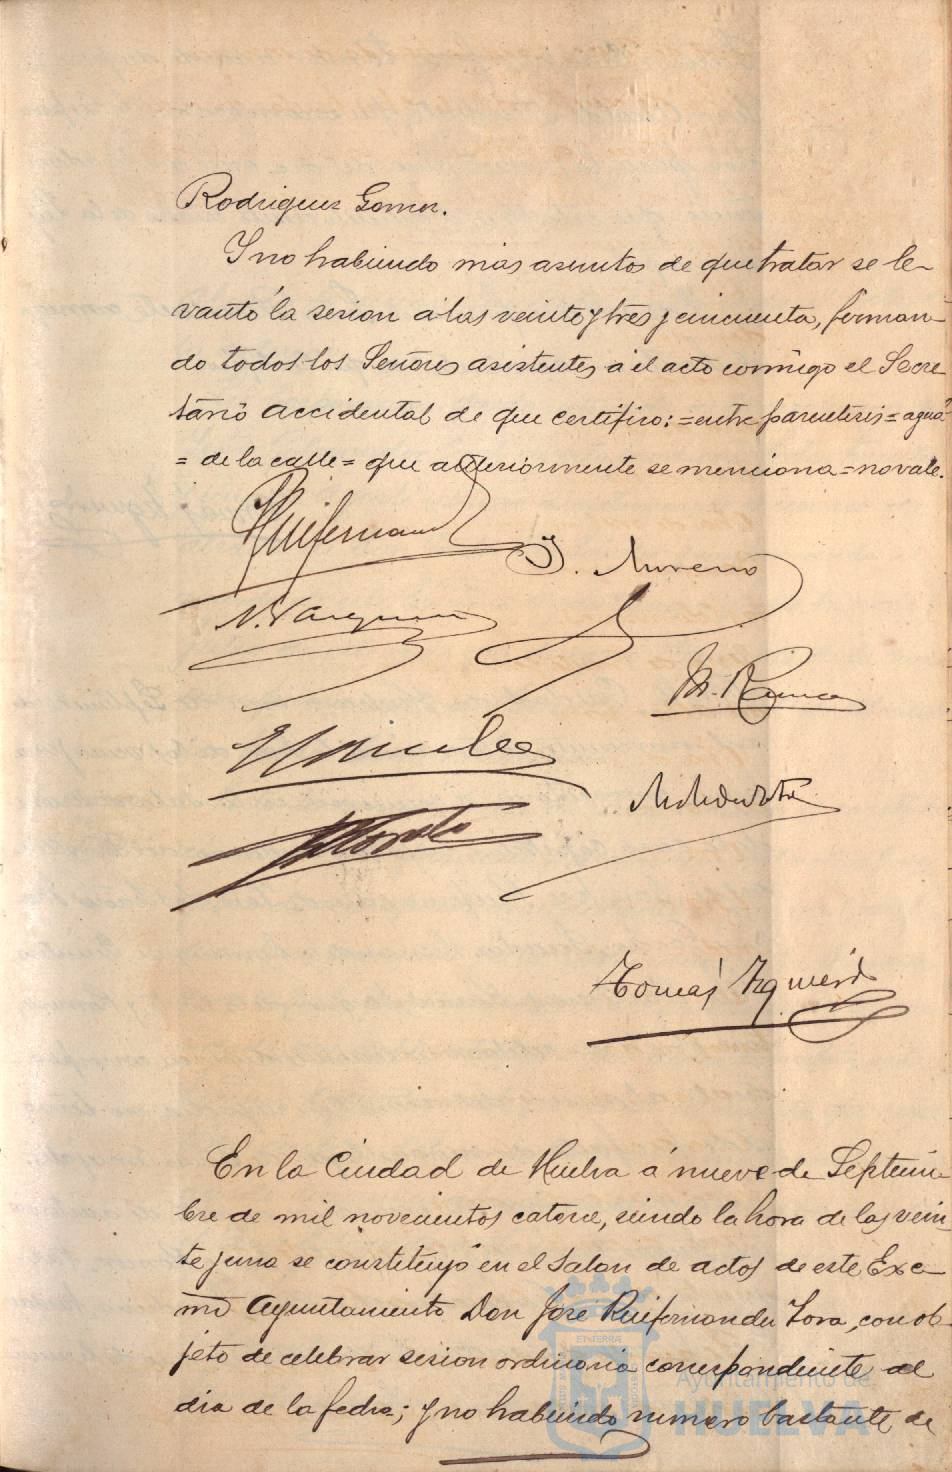 Rodriguez Gomez.
Y no habiendo mas asuntos de que tratar se le-
vantó la sesion á las veinte y tres y cincuenta, firman-
do todos los Señores asistentes á el acto conmigo el Secre
tario accidental de que certifico: = entre parentesis = agua
= de la calle = que anteriormente se menciona = no vale.
Ruifernandez
J. Moreno
N. Vazquez
M.
Tomás Izquierdo
En la Ciudad de Huelva á nueve de Septiem
bre de mil novecientos catorce, siendo la hora de las vein
te y una se constituyó en el Salon de actos de este Exce-
mo Ayuntamiento Don José Ruifernandez Tora, con ob-
jeto de celebrar sesion ordinaria correspondiente al
dia de la fecha; y no habiendo numero bastante de
Ayuntamiento de
HUELVA